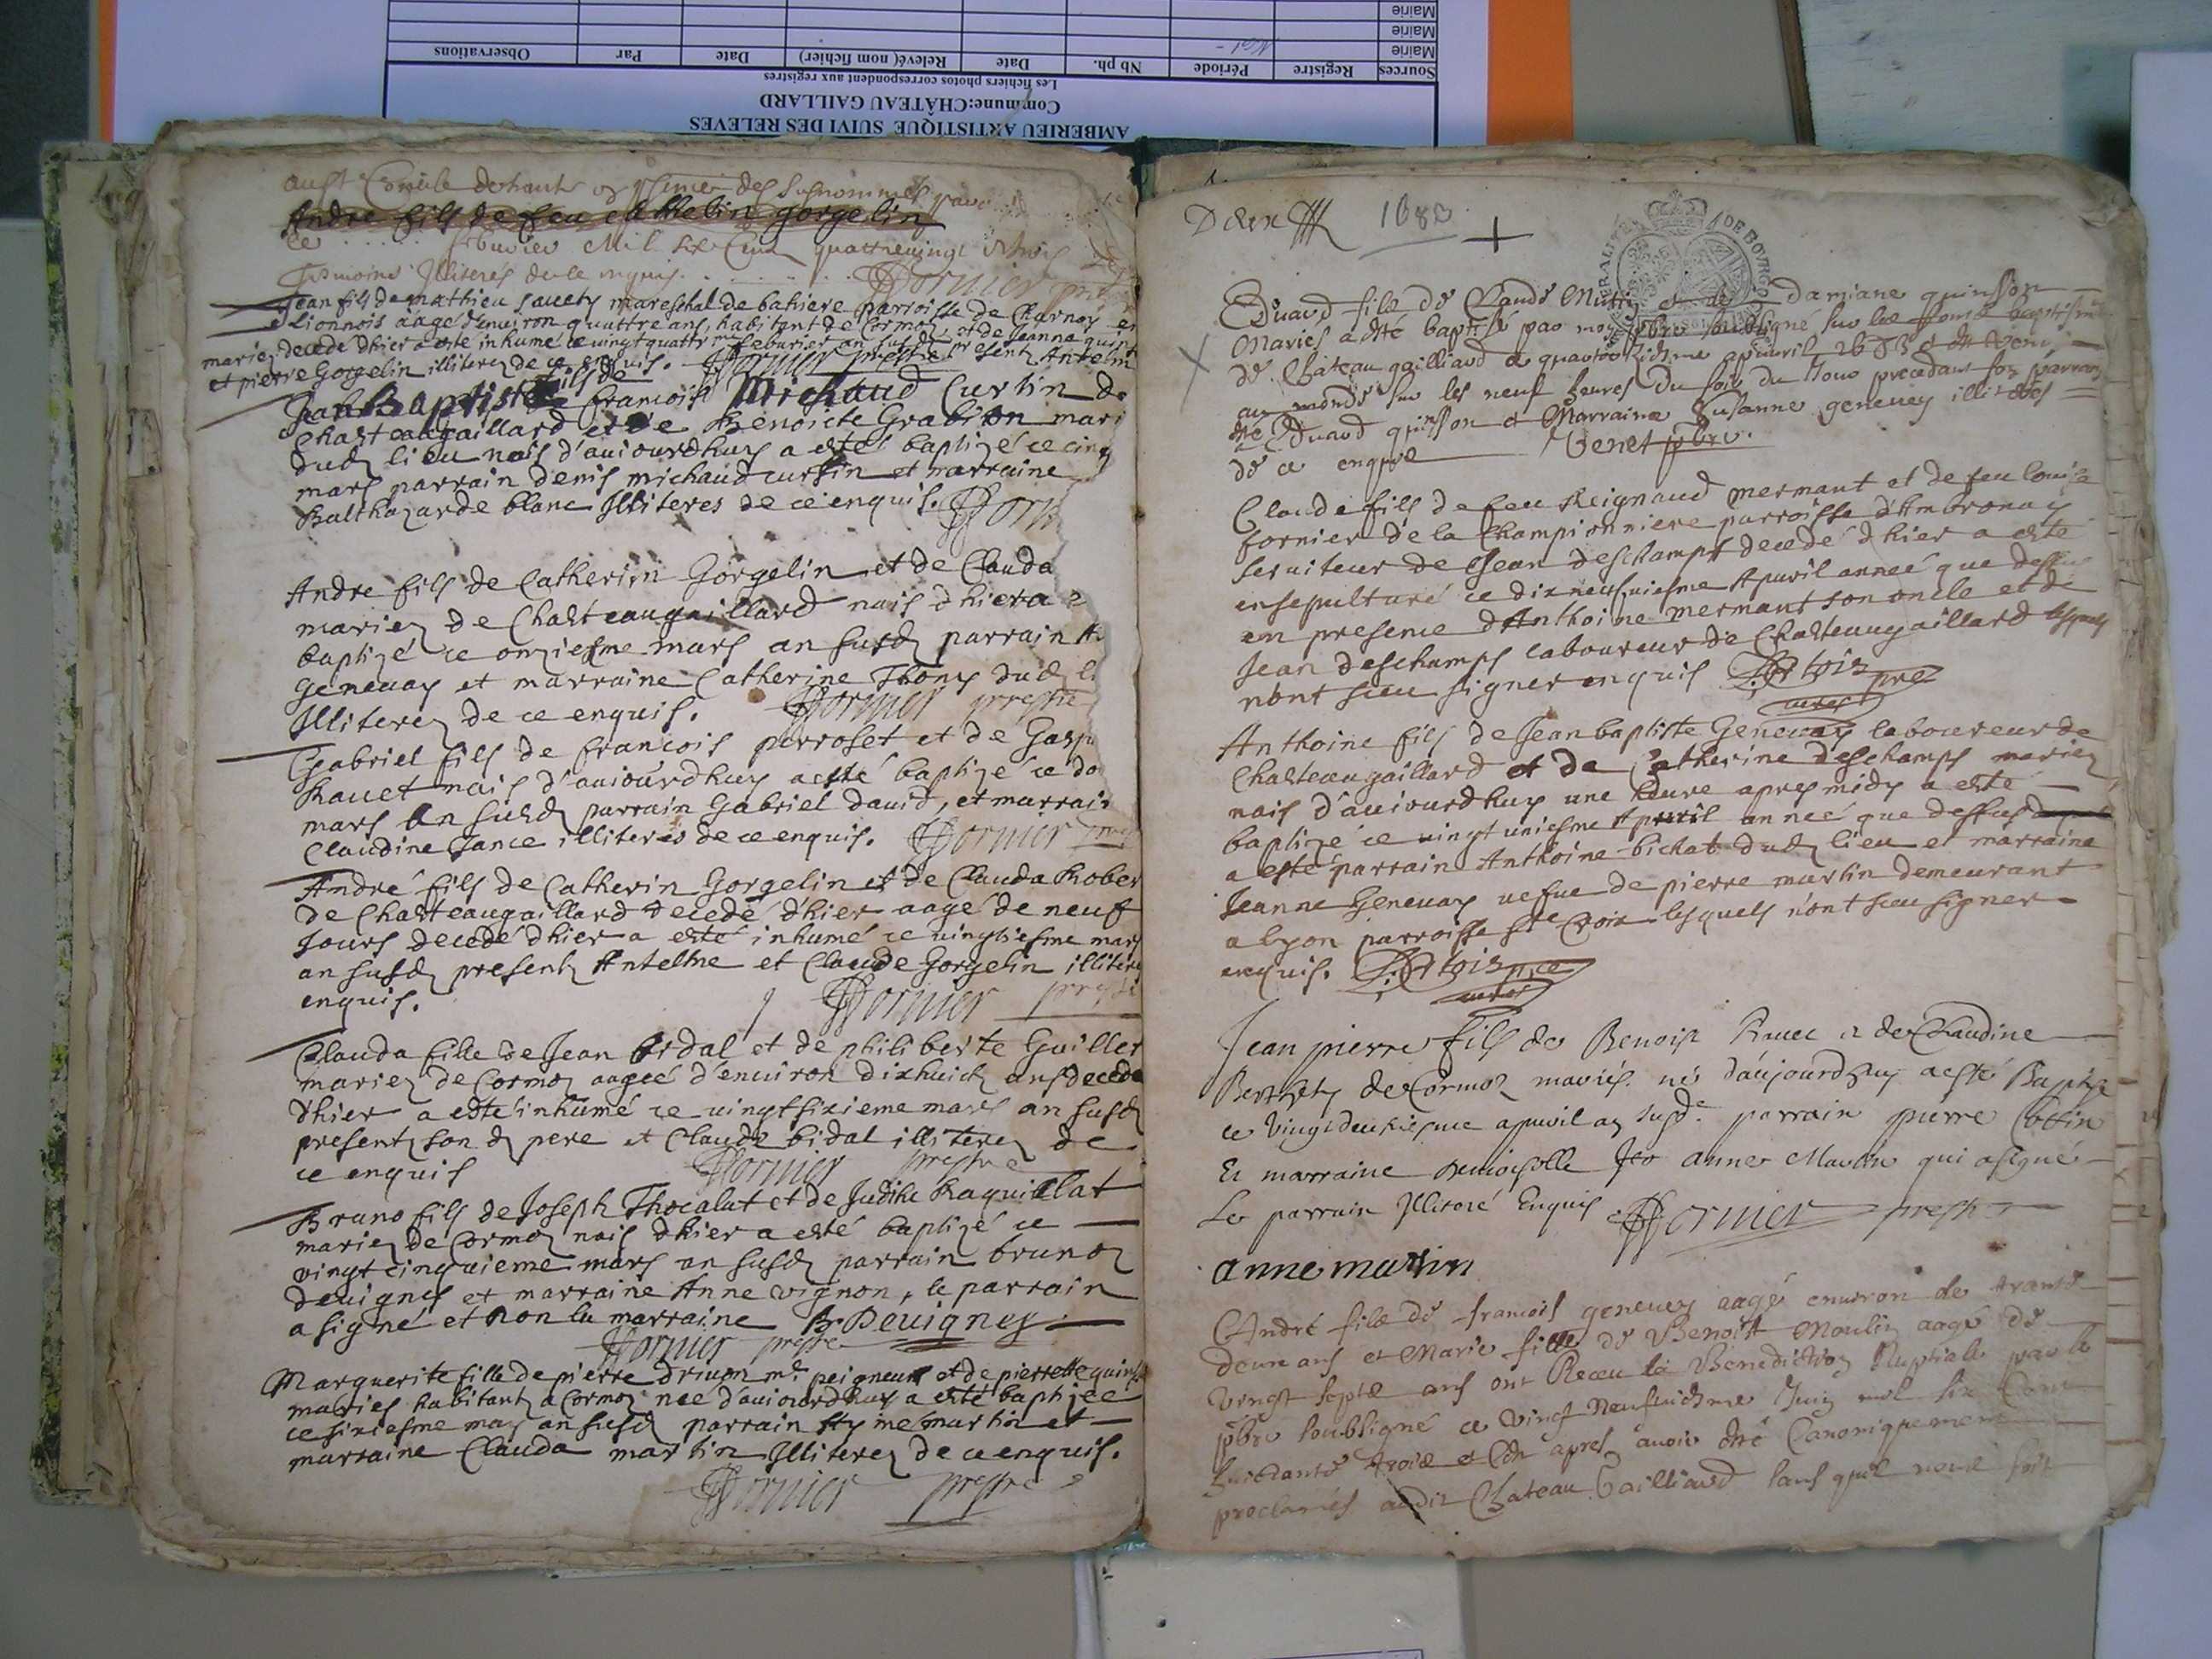 AMBERIEU ARTISTIQUE SUIVI DES RELEVES
Commune:CHÂTEAU GAILLARD
Les fichiers photos correspondent aux registres
Sources Registre Période Nb ph. Date Relevé( nom fichier) Date Par Observations
Mairie
Mairie
Mairie
des susnommés
Andre fils de feu gorgelin
Mil six Cent quattrevingt
Illiteres de ce enquis. Dornier
Jean fils de mathieu mareschal de parroisse de Charnoy
Lionnois aagé d'enuiron quattre ans, habitant de Cormoz, et de Jeanne
mariez decede dhier a esté inhumé ce uingt quattr feburier an susd presentz Antelm
et pierre Gorgelin illiterez de ce enquis. Dornier prestre
Jean Baptiste fils de francois Michaud Curtin de
Chasteaugaillard et de Benoicte Grabion mari
dud lieu nais d'auiourdhuy a esté baptizé ce cinq
mars parrain denis michaud curtin et marraine
Balthazarde blanc Illiteres de ce enquis. Dorn
Andre fils de Catherin Gorgelin et de Clauda
mariez de Chasteaugaillard nais dhier a
baptizé ce onziesme mars an susd parrain
Geneuay et marraine Catherine Thony dud li
Illiterez de ce enquis. Dornier prestre
Gabriel fils de francois perroset et de Gasp
Rauet nais d'auiourdhuy a esté baptizé ce do
mars an susd parrain Gabriel dauid, et marrain
Claudine Jance illiteres de ce enquis. Dornier
André fils de Catherin Gorgelin et de Clauda Rober
de Chasteaugaillard decedé d'hier aagé de neuf
Jours decedé dhier a esté inhumé ce uingtiesme mars
an susd presentz Antelme et Claude Gorgelin illitere
enquis. Dornier prestre
Clauda fille de Jean bidal et de philiberte Guiller
mariez de Cormoz aagée d'enuiron dixhuict ans decede
dhier a esté inhumé ce uingtsixieme mars an susd
presentz son d pere et Claude bidal illiterez de
ce enquis Dornier prestre
Bruno fils de Joseph Thocalat et de Judith Raquillat
mariez de Cormoz nais dhier a esté baptizé ce
vingtcinquieme mars an susd parrain bruno
deuigney et marraine Anne vignon, le parrain
a signé et non la marraine B Deuigney
Dornier prestre
Marguerite fille de pierre druon md peigneur et de pierrette quins
mariés habitantz a Cormoz nee d'auiourdhuy a esté baptizee
ce sixiesme may an susd parrain martin et
marraine Clauda martin Illiterez de ce enquis.
Dornier prestre
1683
Eduard filz de Claude et de Damiane quinsson
Mariés a esté baptisé par moy pbre soubsigné sur les fonds baptismaux
de Château gailliard ce quatorsiesme apvuril 1683 et est venu
au monde sur les neuf heures du soir du Jour precedant son parrain
esté Eduard quinsson et Marraine Susanne geneuey illiterés
de ce enquis Venet pbre.
Claude fils de feu Reignaud mermant et de feu louise
fornier de la Championniere parroisse d'Ambronay
seruiteur de Jean deschamps decedé dhier a esté
ensepulturé ce dixneufuiesme Apuril anneé que dessus
en presence d'Anthoine mermant son oncle et de
Jean deschamps laboureur de Chasteaugaillard lesquels
nont sceu signer enquis
Anthoine fils de Jean baptiste Geneuay laboureur de
Chasteaugaillard et de Catherine deschamps mariez
nais d'auiourdhuy une heure apres midy a esté
baptizé ce uingt uniesme Apuril anneé que dessus
a esté parrain Anthoine bichat dud lieu et marraine
Jeanne Geneuay uefue de pierre martin demeurant
a lyon parroisse Ste Croix lesquels n'ont sceu signer
enquis.
Jean pierre fils de Benoist Rauet et de Claudine
de Cormoz mariés. né d'aujourdhuy a esté Baptizé
ce Vingtdeuxiesme apuril an susd. parrain pierre Cottin
Et marraine demoiselle anne Martin qui a signé
Le parrain Illiteré Enquis Dornier prestre
anne martin
André filz de francois geneuey aagé enuiron de trante
deux ans et Marie fille de Benoist Moulin aagé de
Vingt septz ans ont Receu la Benediction Nuptiale par le
pbre soubsigné ce Vingt Neufuiesme Juin mil six Cent
huictante troix et Ce apres auoir esté Canoniquement
proclamés audit Chateau Gailliard sans quil nous soit